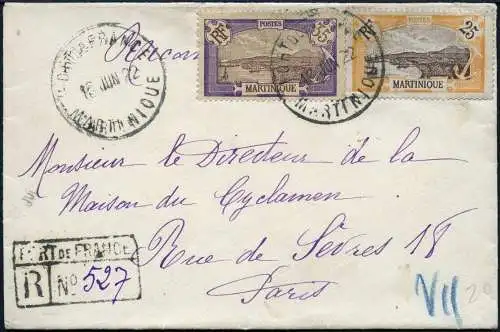 FORT DE FRANCE
16 JUIN 22
MARTINIQUE
POSTES
RF
35
MARTINIQUE
POSTES
RF
25
MARTINIQUE
MARTINIQUE
Monsieur le Directeur de la
Maison du Cyclamen
Rue de Sèvres 18
Paris
FORT DE FRANCE
R No 527
VII
20